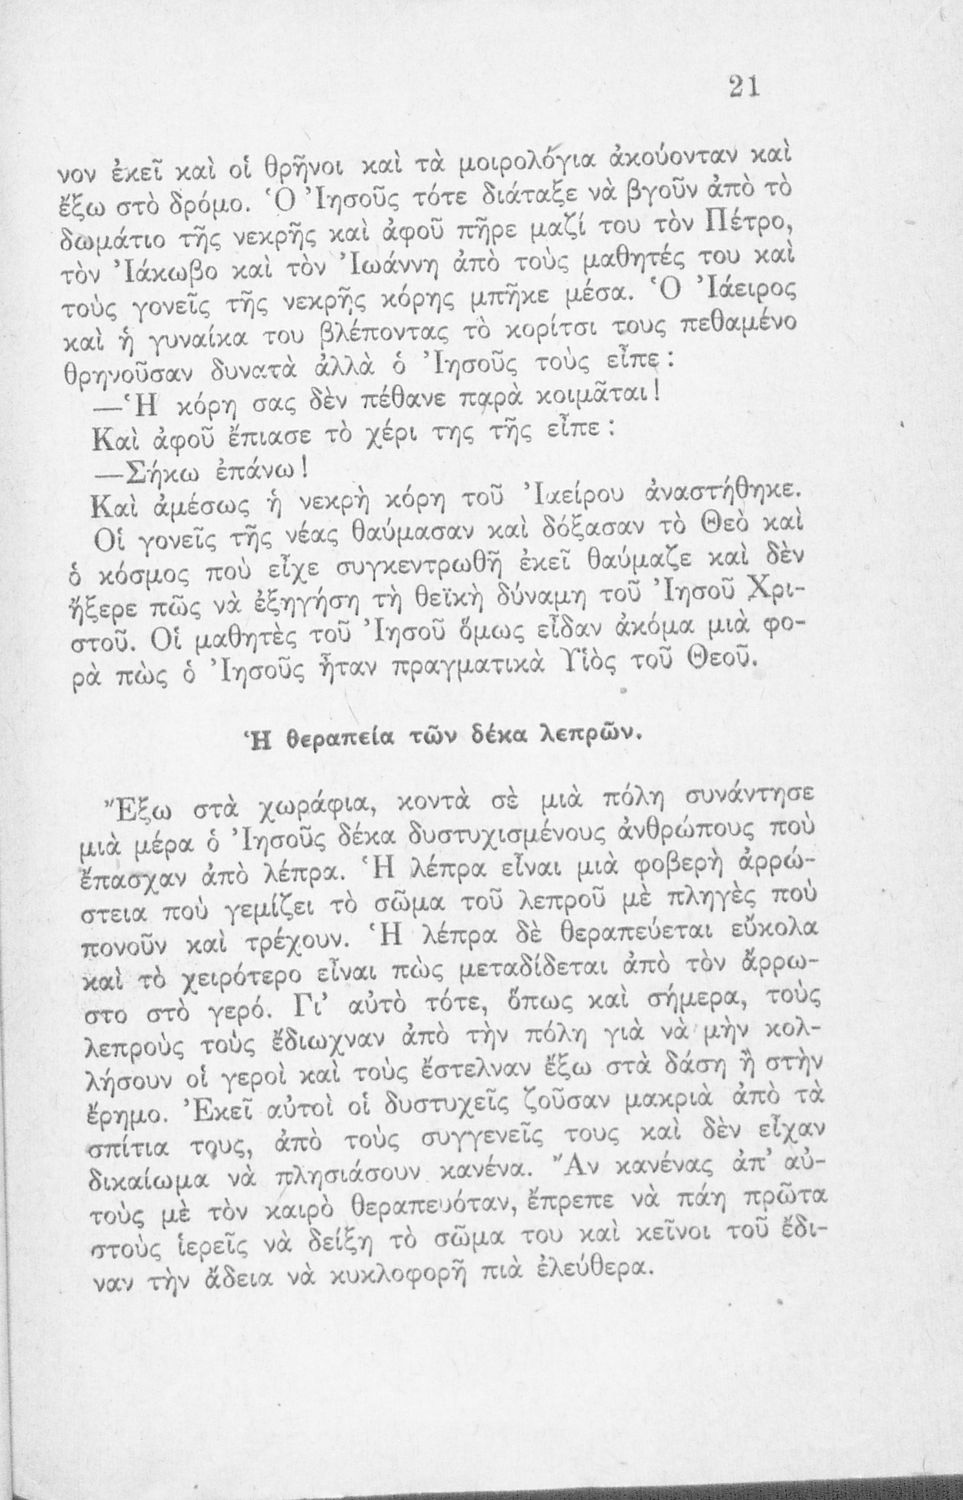 21
νον ἐκεῖ καὶ οἱ θρῆνοι καὶ τὰ μοιρολόγια ἀκούονταν καὶ
ἔξω στὸ δρόμο. Ὁ Ἰησοῦς τότε διάταξε νὰ βγοῦν ἀπὸ τὸ
δωμάτιο τῆς νεκρῆς καὶ ἀφοῦ πῆρε μαζί του τὸν Πέτρο,
τὸν Ἰάκωβο καὶ τὸν Ἰωάννη ἀπὸ τοὺς μαθητές του καὶ
τοὺς γονεῖς τῆς νεκρῆς κόρης μπῆκε μέσα. Ὁ Ἰάειρος
καὶ ἡ γυναίκα του βλέποντας τὸ κορίτσι τους πεθαμένο
θρηνοῦσαν δυνατὰ ἀλλὰ ὁ Ἰησοῦς τοὺς εἶπε :
—Ἡ κόρη σας δὲν πέθανε παρὰ κοιμᾶται !
Καὶ ἀφοῦ ἔπιασε τὸ χέρι της τῆς εἶπε :
—Σήκω ἐπάνω !
Καὶ ἀμέσως ἡ νεκρὴ κόρη τοῦ Ἰαείρου ἀναστήθηκε.
Οἱ γονεῖς τῆς νέας θαύμασαν καὶ δόξασαν τὸ Θεὸ καὶ
ὁ κόσμος ποὺ εἶχε συγκεντρωθῆ ἐκεῖ θαύμαζε καὶ δὲν
ἤξερε πῶς νὰ ἐξηγήση τὴ θεϊκὴ δύναμη τοῦ Ἰησοῦ Χρι-
στοῦ. Οἱ μαθητὲς τοῦ Ἰησοῦ ὅμως εἶδαν ἀκόμα μιὰ φο-
ρὰ πὼς ὁ Ἰησοῦς ἦταν πραγματικὰ Υἱὸς τοῦ Θεοῦ.
Ἡ θεραπεία τῶν δέκα λεπρῶν.
Ἔξω στὰ χωράφια, κοντὰ σὲ μιὰ πόλη συνάντησε
μιὰ μέρα ὁ Ἰησοῦς δέκα δυστυχισμένους ἀνθρώπους ποὺ
ἔπασχαν ἀπὸ λέπρα. Ἡ λέπρα εἶναι μιὰ φοβερὴ ἀρρώ-
στεια ποὺ γεμίζει τὸ σῶμα τοῦ λεπροῦ μὲ πληγὲς ποὺ
πονοῦν καὶ τρέχουν. Ἡ λέπρα δὲ θεραπεύεται εὔκολα
καὶ τὸ χειρότερο εἶναι πὼς μεταδίδεται ἀπὸ τὸν ἄρρω-
στο στὸ γερό. Γι’ αὐτὸ τότε, ὅπως καὶ σήμερα, τοὺς
λεπροὺς τοὺς ἔδιωχναν ἀπὸ τὴν πόλη γιὰ νὰ μὴν κολ-
λήσουν οἱ γεροὶ καὶ τοὺς ἔστελναν ἔξω στὰ δάση ἢ στὴν
ἔρημο. Ἐκεῖ αὐτοὶ οἱ δυστυχεῖς ζοῦσαν μακριὰ ἀπὸ τὰ
σπίτια τους, ἀπὸ τοὺς συγγενεῖς τους καὶ δὲν εἶχαν
δικαίωμα νὰ πλησιάσουν κανένα. Ἂν κανένας ἀπ’ αὐ-
τοὺς μὲ τὸν καιρὸ θεραπευόταν, ἔπρεπε νὰ πάη πρῶτα
στοὺς ἱερεῖς νὰ δείξη τὸ σῶμα του καὶ κεῖνοι τοῦ ἔδι-
ναν τὴν ἄδεια νὰ κυκλοφορῆ πιὰ ἐλεύθερα.